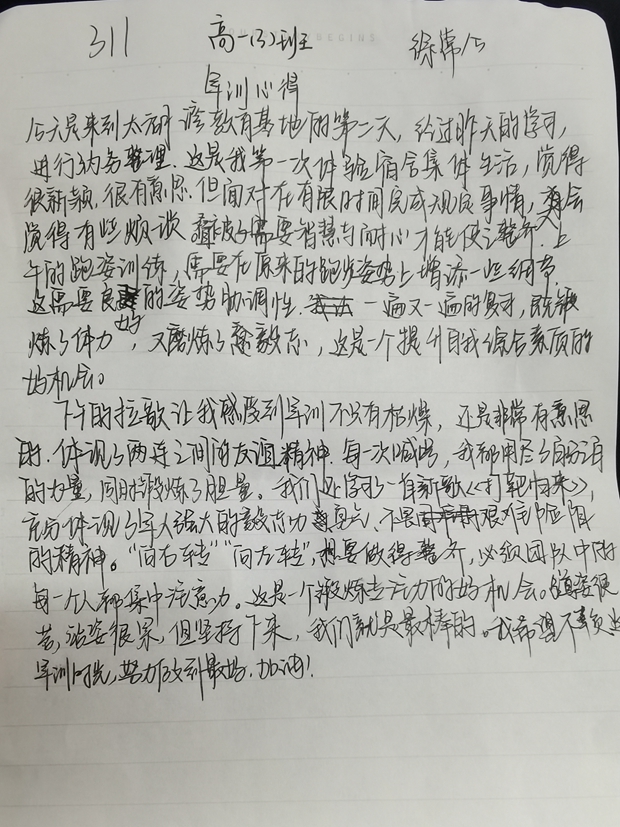 311 高一(3)班
军训心得
今天是来到太湖 教育基地的第二天，经过昨天的学习，
进行内务整理。这是我第一次体验宿舍集体生活，觉得
很新颖，很有意思。但面对在有限时间完成规定事情，会
觉得有些烦 需要智慧与耐心才能使之整齐。上
午的跑姿训练，需要在原来的跑步姿势上增添一些细节，
这需要良好的姿势协调性。一遍又一遍的复习，既锻
炼了体力，又磨炼了意志，这是一个提升自我综合素质的
好机会。
下午的拉歌让我感受到军训不只有枯燥，还是非常有意思
的。体现了两连之间的友谊精神。每一次喊出，我都用尽了自己
的力量，同时锻炼了胆量。我们还学习了一首新歌《打靶归来》，
充分体现了军人强大的毅志力 勇气、不畏艰难险阻
的精神。“向右转”“向左转”，想要做得整齐，必须团队中的
每一个人都集中注意力。这是一个锻炼专注力的好机会。 很
苦， 姿很累，但坚持下来，我们就是最棒的。我希望不负
军训时光，努力做到最好，加油！